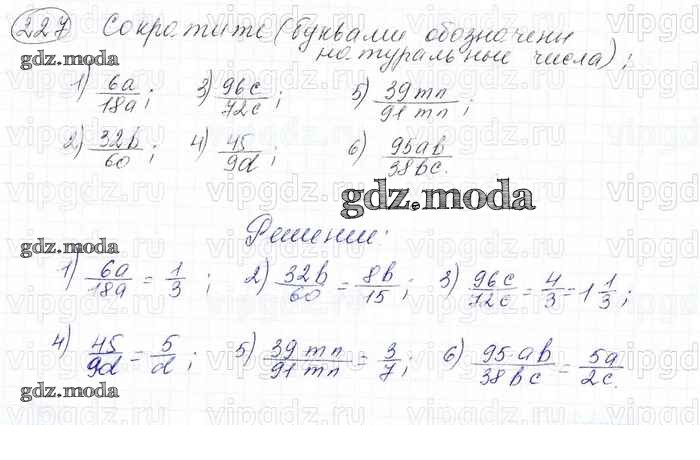 227 Сократите (буквами обозначены
натуральные числа):
1) 6a/18a; 3) 96c/72c; 5) 39mn/91mn;
2) 32b/60; 4) 45/9d; 6) 95ab/38bc.
gdz.moda
Решение:
1) 6a/18a = 1/3; 2) 32b/60 = 8b/15; 3) 96c/72c = 4/3 = 1 1/3;
4) 45/9d = 5/d; 5) 39mn/91mn = 3/7; 6) 95ab/38bc = 5a/2c.
gdz.moda